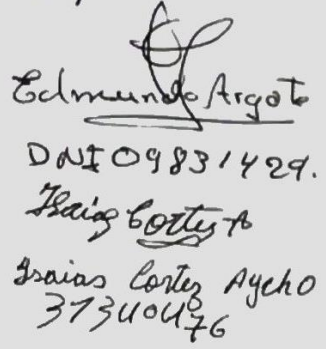 Edmundo Argote
DNI 09831429.
Isaias Cortez A
Isaias Cortez Aycho
31340476